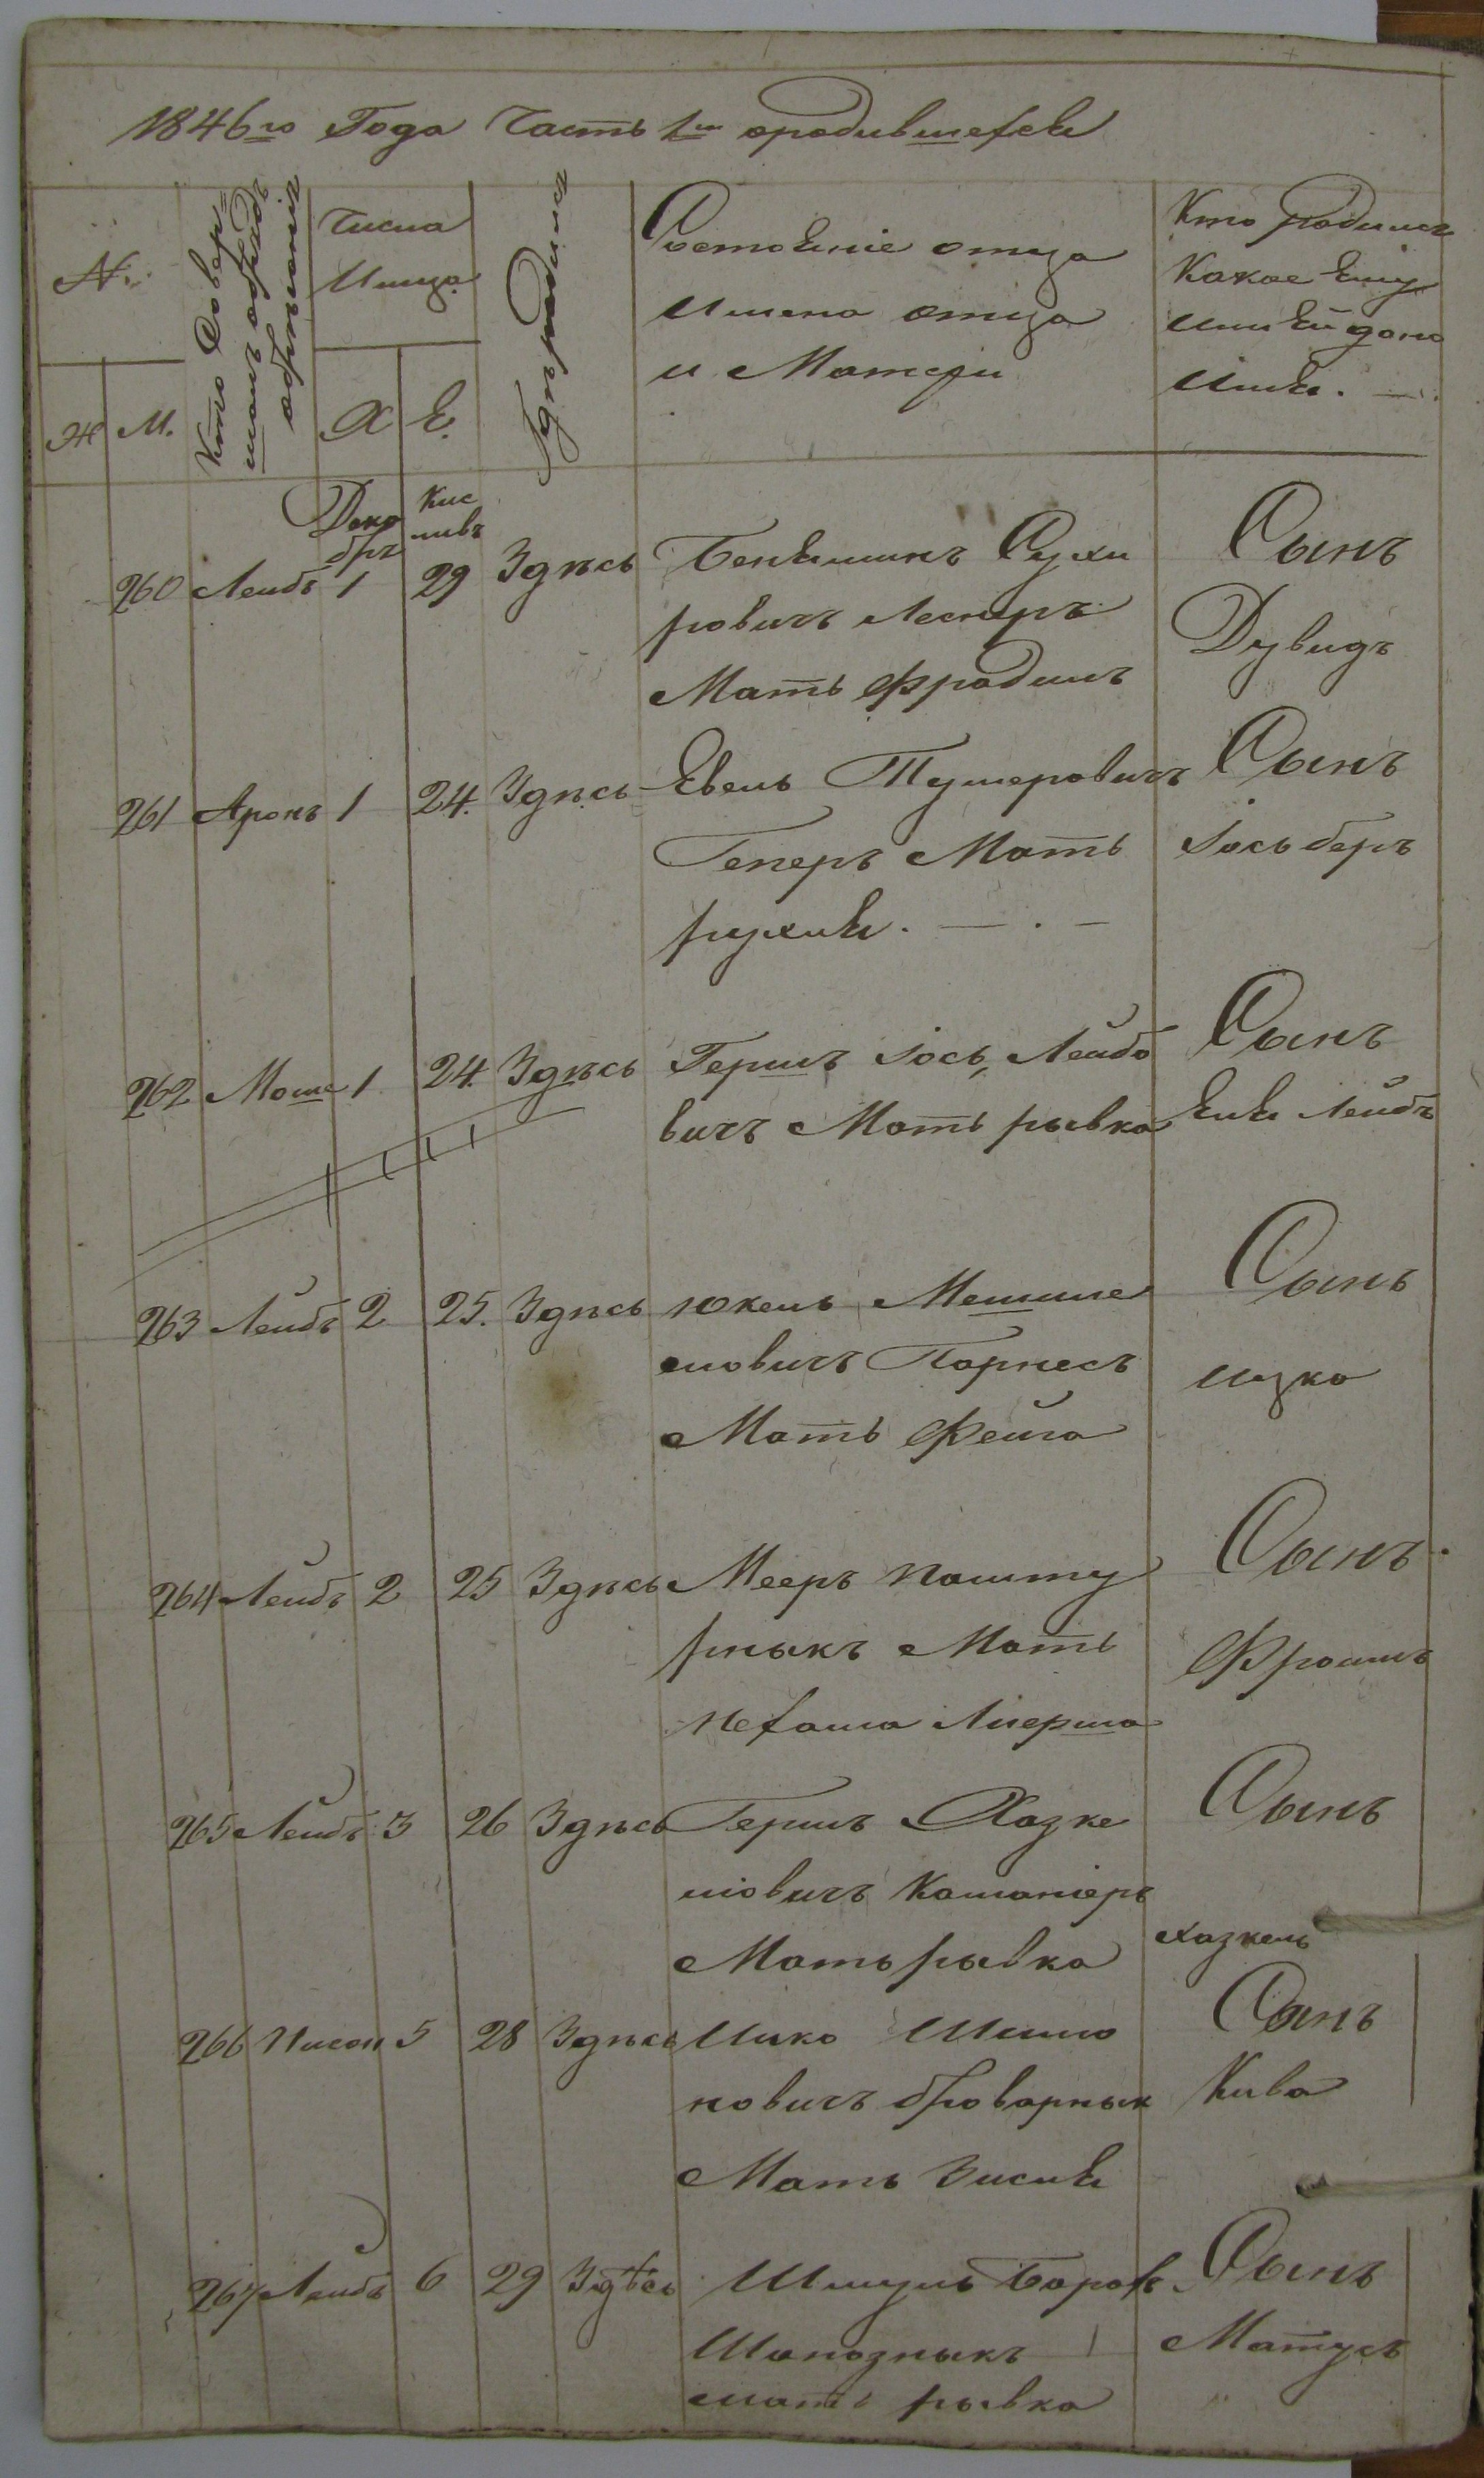 1846го Года Часть 1я ородившехся
№
Кто совер=
шалъ обрядъ
обрѣзанія
Числа
Мѣсяца
Гдѣ родился
Состояніе отца
Имена отца
и Матери
Кто родился
Какое ему
или ей дано
Имя. —
Ж М. Х Е.
Дека
бря
Кис
ливъ
260 Лейбъ 1 29 Здѣсь Беняминъ Сухи
ровичъ Леснеръ
Мать Фрадимъ
Сынъ
Дувидъ
261 Аронъ 1 24. Здѣсь Евель
Геперъ Мать
рухля. — . —
Сынъ
Іось беръ
262 Моше 1 24. Здѣсь Гершъ Іось, Лейбо
вичъ Мать рывка
Сынъ
Лейбъ
263 Лейбъ 2 25. Здѣсь Юкель Мешуле
мовичъ Парнесъ
Мать Фейга
Сынъ
Ицко
264 Лейбъ 2 25 Здѣсь Мееръ
Мать
Сынъ
Фроимъ
265 Лейбъ 3 26 Здѣсь Гершъ Хазке
ліовичъ
Мать рывка
Сынъ
хазкель
266 Нисон 5 28 Здѣсь Шимо
новичъ броварнык
Мать Зисля
Сынъ
Кива
267 Лейбъ 6 29 Здѣсь Шмуль Боров.
Шапозныкъ
мать рывка
Сынъ
Матусъ